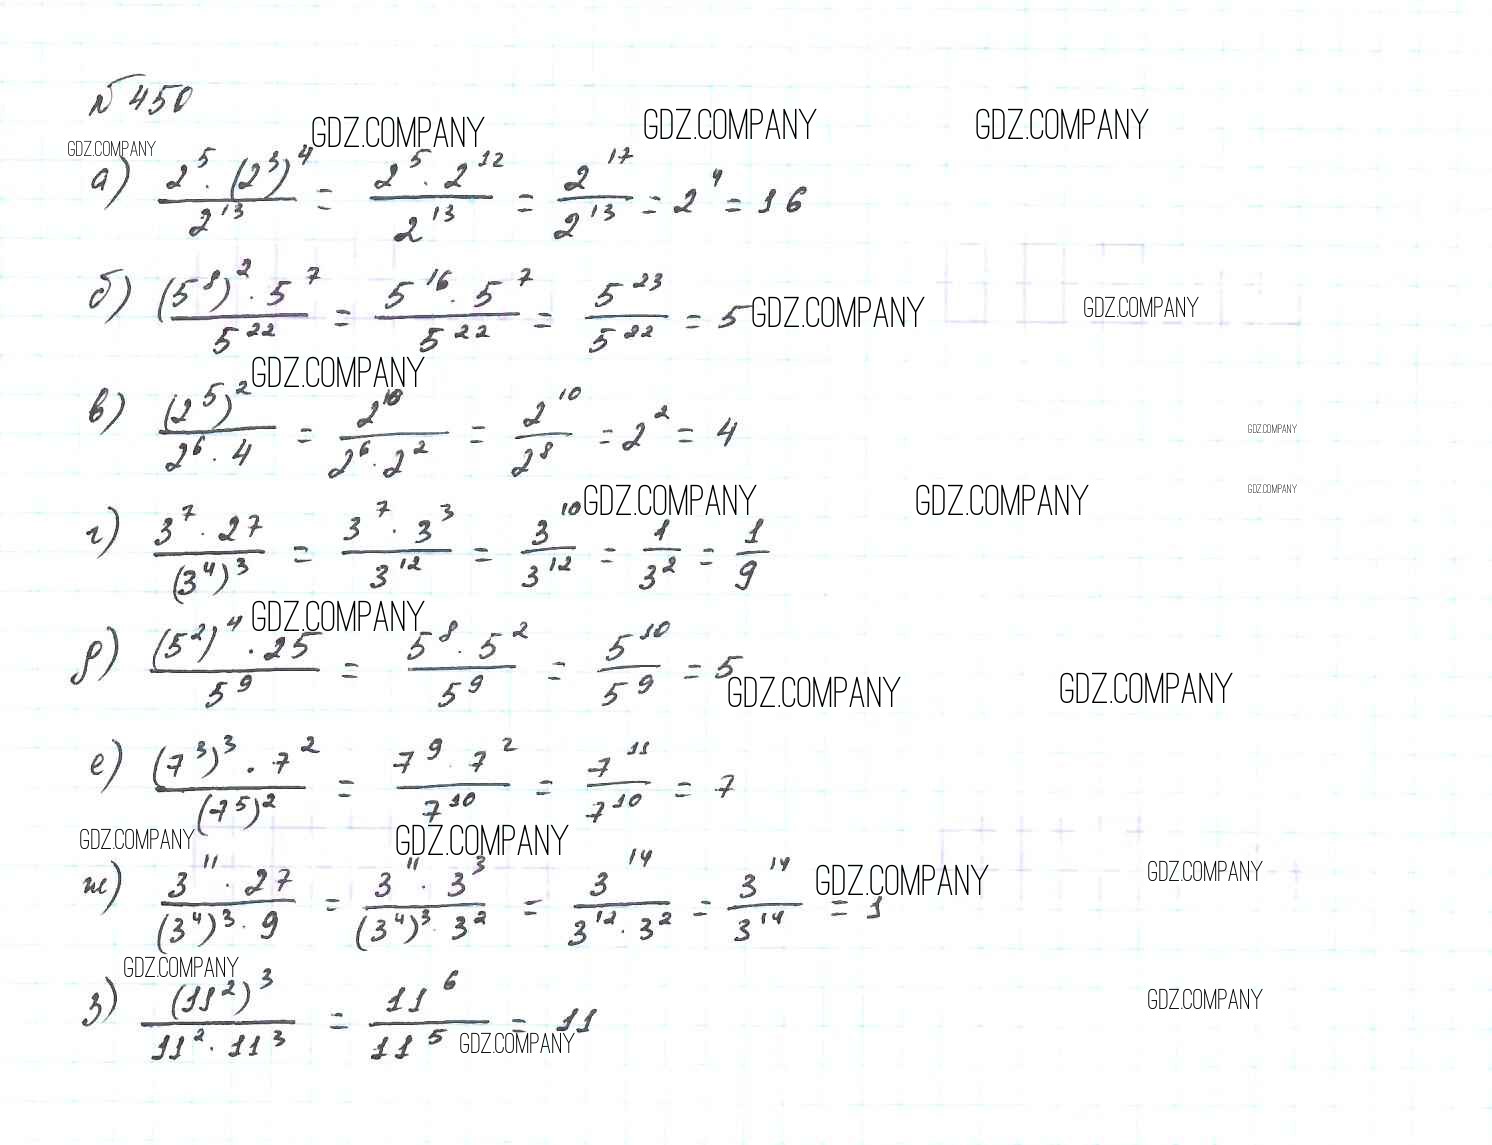 № 450
GDZ.COMPANY GDZ.COMPANY GDZ.COMPANY GDZ.COMPANY
а) (2^5 · (2^3)^4)/2^13 = (2^5 · 2^12)/2^13 = 2^17/2^13 = 2^4 = 16
б) ((5^8)^2 · 5^7)/5^22 = (5^16 · 5^7)/5^22 = 5^23/5^22 = 5 GDZ.COMPANY GDZ.COMPANY
GDZ.COMPANY
в) (2^5)^2/(2^6 · 4) = 2^10/(2^6 · 2^2) = 2^10/2^8 = 2^2 = 4 GDZ.COMPANY
GDZ.COMPANY GDZ.COMPANY GDZ.COMPANY
г) (3^7 · 27)/(3^4)^3 = (3^7 · 3^3)/3^12 = 3^10/3^12 = 1/3^2 = 1/9
GDZ.COMPANY
д) ((5^2)^4 · 25)/5^9 = (5^8 · 5^2)/5^9 = 5^10/5^9 = 5
GDZ.COMPANY GDZ.COMPANY
е) ((7^3)^3 · 7^2)/(7^5)^2 = (7^9 · 7^2)/7^10 = 7^11/7^10 = 7
GDZ.COMPANY GDZ.COMPANY
ж) (3^11 · 27)/((3^4)^3 · 9) = (3^11 · 3^3)/((3^4)^3 · 3^2) = 3^14/(3^12 · 3^2) = 3^14/3^14 = 1 GDZ.COMPANY GDZ.COMPANY
GDZ.COMPANY
з) (11^2)^3/(11^2 · 11^3) = 11^6/11^5 = 11 GDZ.COMPANY
GDZ.COMPANY